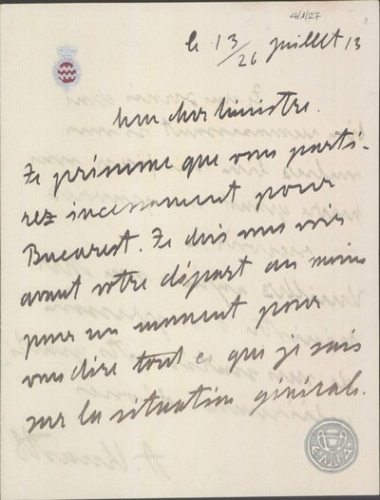 4/1/27
le 13/26 juillet 13
Mon cher Ministre.
Je présume que vous parti-
rez incessament pour
Bucarest. Je dois vous voir
avant votre départ au moins
pour un moment pour
vous dire tout ce que je sais
sur la situation générale.